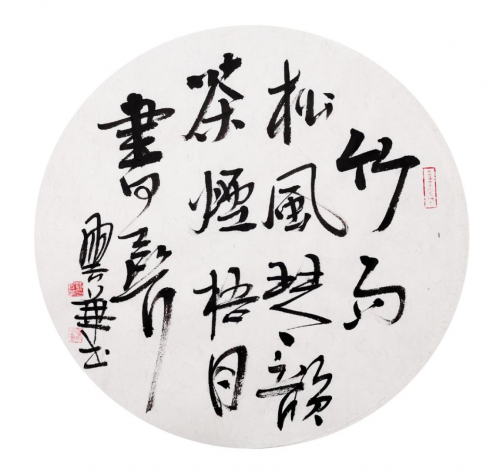 竹雨
松風琴韻
茶煙梧月
書聲
華书